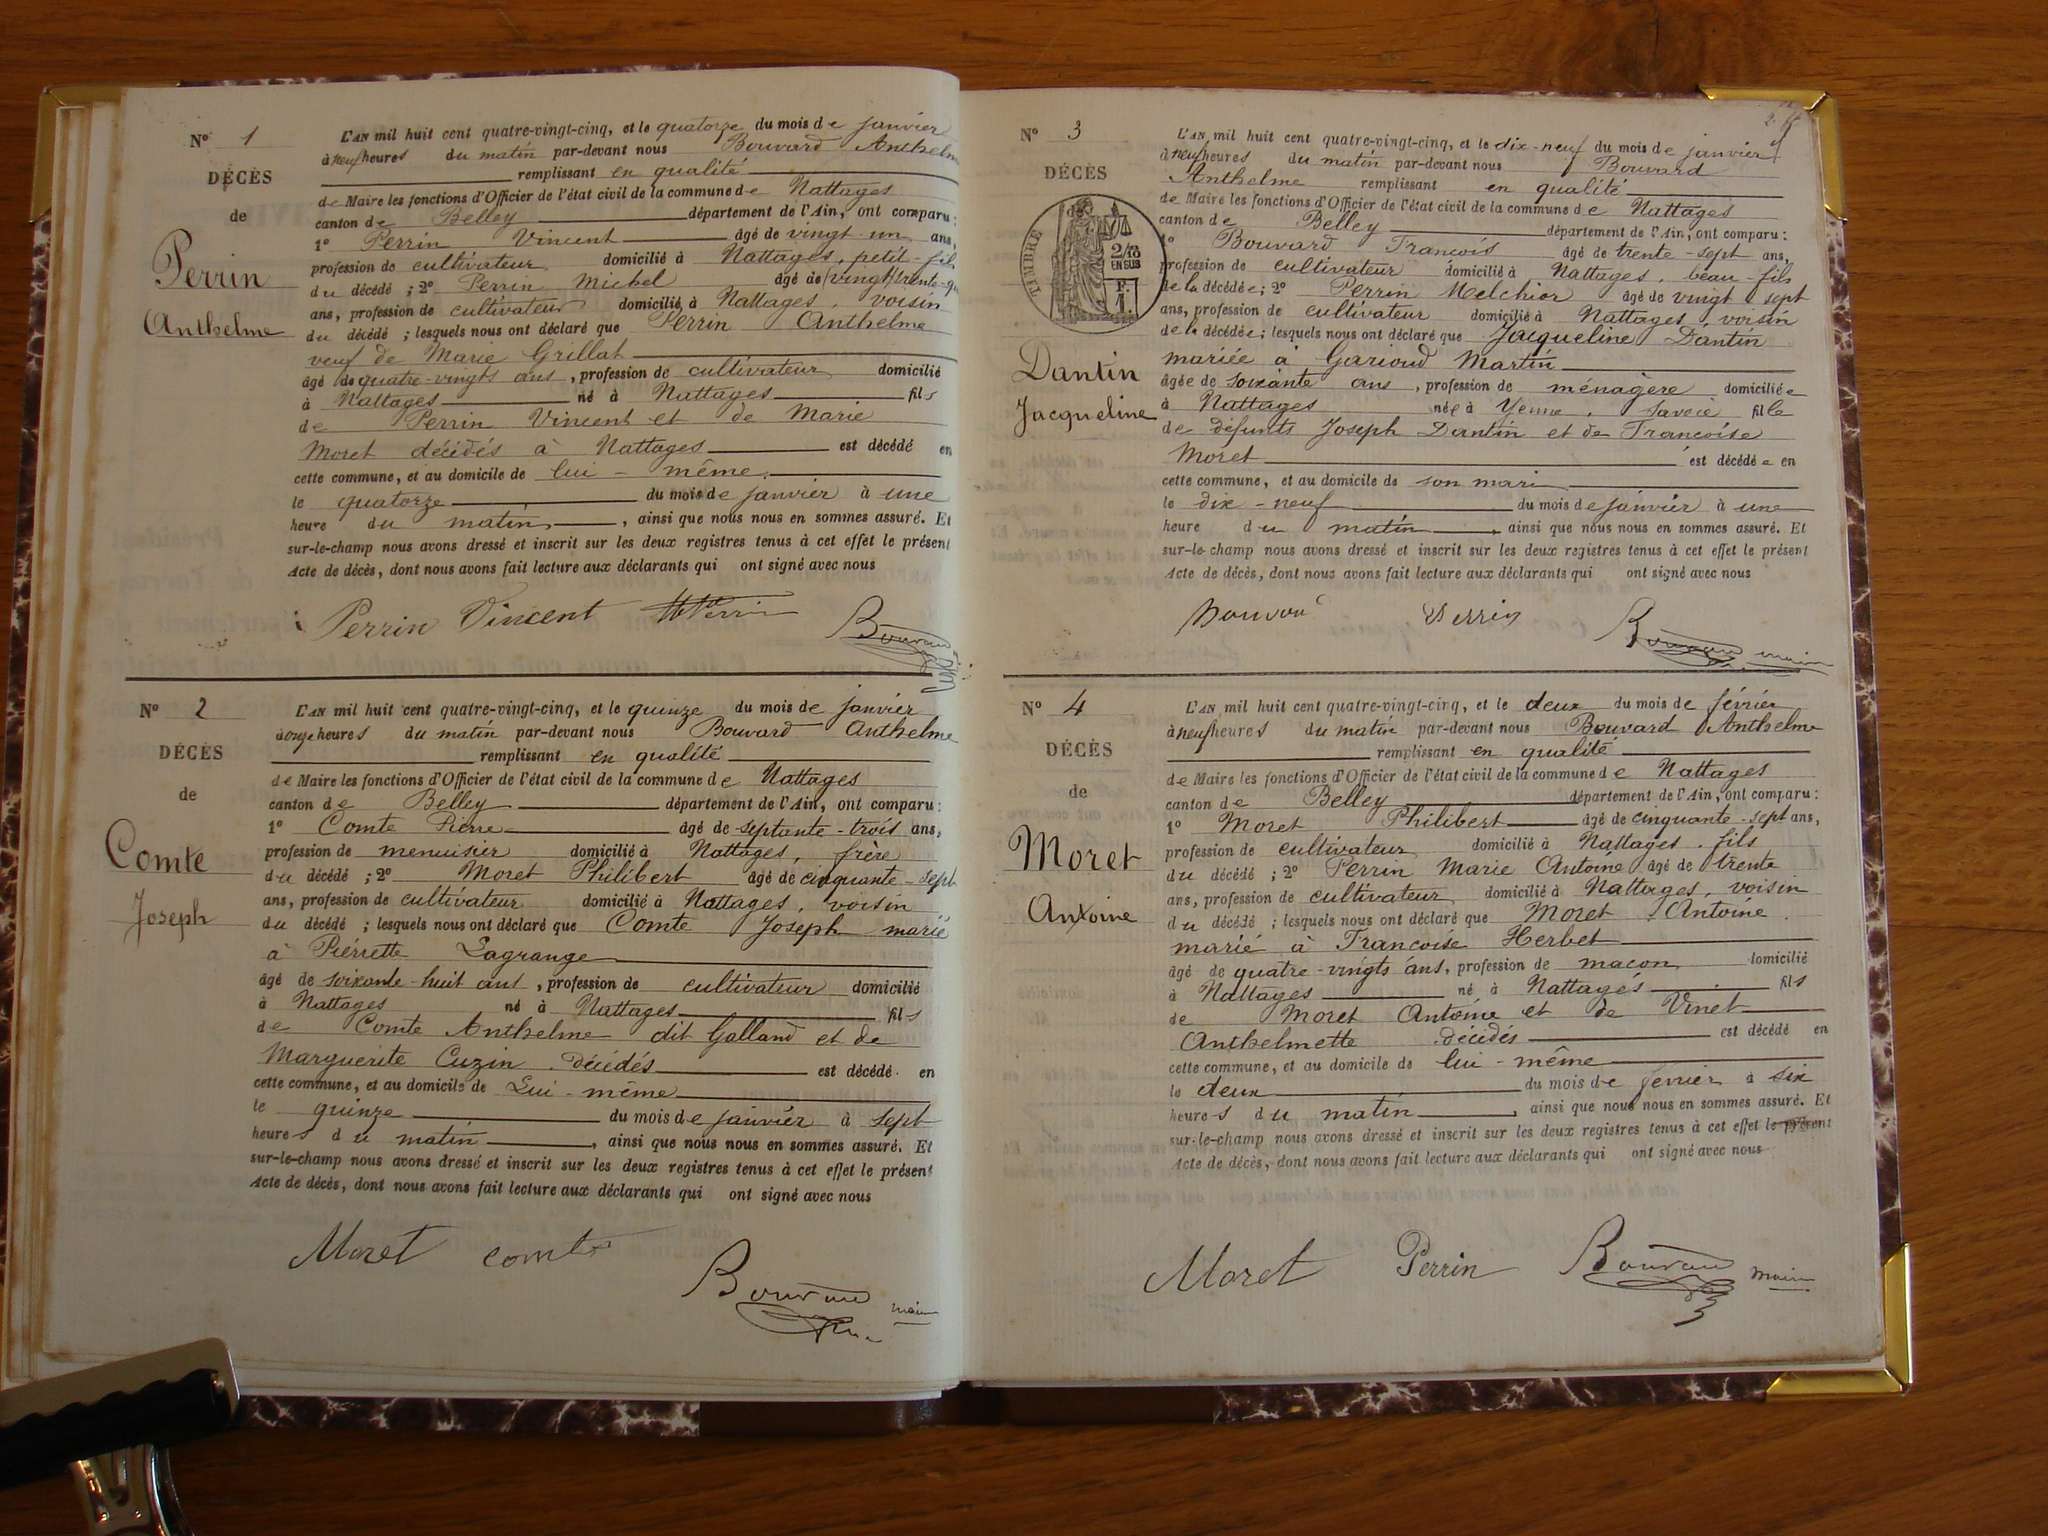 N° 1
DÉCÈS
de
Perrin
Anthelme
L'AN mil huit cent quatre-vingt-cinq, et le quatorze du mois de janvier
à neuf heures du matin par-devant nous Bouvard Anthelme
remplissant en qualité
de Maire les fonctions d'Officier de l'état civil de la commune de Nattages
canton de Belley département de l'Ain, ont comparu:
1° Perrin Vincent âgé de vingt-un ans,
profession de cultivateur domicilié à Nattages, petit-fils
du décédé ; 2° Perrin Michel âgé de (vingt) trente-
ans, profession de cultivateur domicilié à Nattages, voisin
du décédé ; lesquels nous ont déclaré que Perrin Anthelme
veuf de Marie Grillat
âgé de quatre-vingts ans, profession de cultivateur domicilié
à Nattages né à Nattages fils
de Perrin Vincent et de Marie
Moret décédés à Nattages est décédé en
cette commune, et au domicile de lui-même
le quatorze du mois de janvier à une
heure du matin, ainsi que nous nous en sommes assuré. Et
sur-le-champ nous avons dressé et inscrit sur les deux registres tenus à cet effet le présent
Acte de décès, dont nous avons fait lecture aux déclarants qui ont signé avec nous
Perrin Vincent Perrin Bouvard
N° 2
DÉCÈS
de
Comte
Joseph
L'AN mil huit cent quatre-vingt-cinq, et le quinze du mois de janvier
à onze heures du matin par-devant nous Bouvard Anthelme
remplissant en qualité
de Maire les fonctions d'Officier de l'état civil de la commune de Nattages
canton de Belley département de l'Ain, ont comparu:
1° Comte Pierre âgé de septante-trois ans,
profession de menuisier domicilié à Nattages, frère
du décédé ; 2° Moret Philibert âgé de cinquante-sept
ans, profession de cultivateur domicilié à Nattages, voisin
du décédé ; lesquels nous ont déclaré que Comte Joseph marié
à Pierrette Lagrange
âgé de soixante-huit ans, profession de cultivateur domicilié
à Nattages né à Nattages fils
de Comte Anthelme dit Galland et de
Marguerite Cuzin décédés est décédé en
cette commune, et au domicile de Lui-même
le quinze du mois de janvier à sept
heures du matin, ainsi que nous nous en sommes assuré. Et
sur-le-champ nous avons dressé et inscrit sur les deux registres tenus à cet effet le présent
Acte de décès, dont nous avons fait lecture aux déclarants qui ont signé avec nous
Moret comte Bouvard maire
N° 3
DÉCÈS
de
TIMBRE
2/10
EN SUS
F.
1.
Dantin
Jacqueline
L'AN mil huit cent quatre-vingt-cinq, et le dix-neuf du mois de janvier
à neuf heures du matin par-devant nous Bouvard
Anthelme remplissant en qualité
de Maire les fonctions d'Officier de l'état civil de la commune de Nattages
canton de Belley département de l'Ain, ont comparu:
1° Bouvard François âgé de trente-sept ans,
profession de cultivateur domicilié à Nattages, beau-fils
de la décédée; 2° Perrin Melchior âgé de vingt sept
ans, profession de cultivateur domicilié à Nattages voisin
de la décédée; lesquels nous ont déclaré que Jacqueline Dantin
mariée à Garioud Martin
âgée de soixante ans, profession de ménagère domiciliée
à Nattages née à Yenne, Savoie fille
de défunts Joseph Dantin et de Françoise
Moret est décédée en
cette commune, et au domicile de son mari
le dix-neuf du mois de janvier à une
heure du matin, ainsi que nous nous en sommes assuré. Et
sur-le-champ nous avons dressé et inscrit sur les deux registres tenus à cet effet le présent
Acte de décès, dont nous avons fait lecture aux déclarants qui ont signé avec nous
Perrin Bouvard maire
N° 4
DÉCÈS
de
Moret
Antoine
L'AN mil huit cent quatre-vingt-cinq, et le deux du mois de février
à neuf heures du matin par-devant nous Bouvard Anthelme
remplissant en qualité
de Maire les fonctions d'Officier de l'état civil de la commune de Nattages
canton de Belley département de l'Ain, ont comparu:
1° Moret Philibert âgé de cinquante-sept ans,
profession de cultivateur domicilié à Nattages, fils
du décédé ; 2° Perrin Marie Antoine âgé de trente
ans, profession de cultivateur domicilié à Nattages, voisin
du décédé ; lesquels nous ont déclaré que Moret Antoine
marié à Françoise Herbet
âgé de quatre-vingts ans, profession de maçon domicilié
à Nattages né à Nattages fils
de Moret Antoine et de Vinet
Anthelmette décédés est décédé en
cette commune, et au domicile de lui-même
le deux du mois de février à six
heures du matin, ainsi que nous nous en sommes assuré. Et
sur-le-champ nous avons dressé et inscrit sur les deux registres tenus à cet effet le présent
Acte de décès, dont nous avons fait lecture aux déclarants qui ont signé avec nous
Moret Perrin Bouvard maire